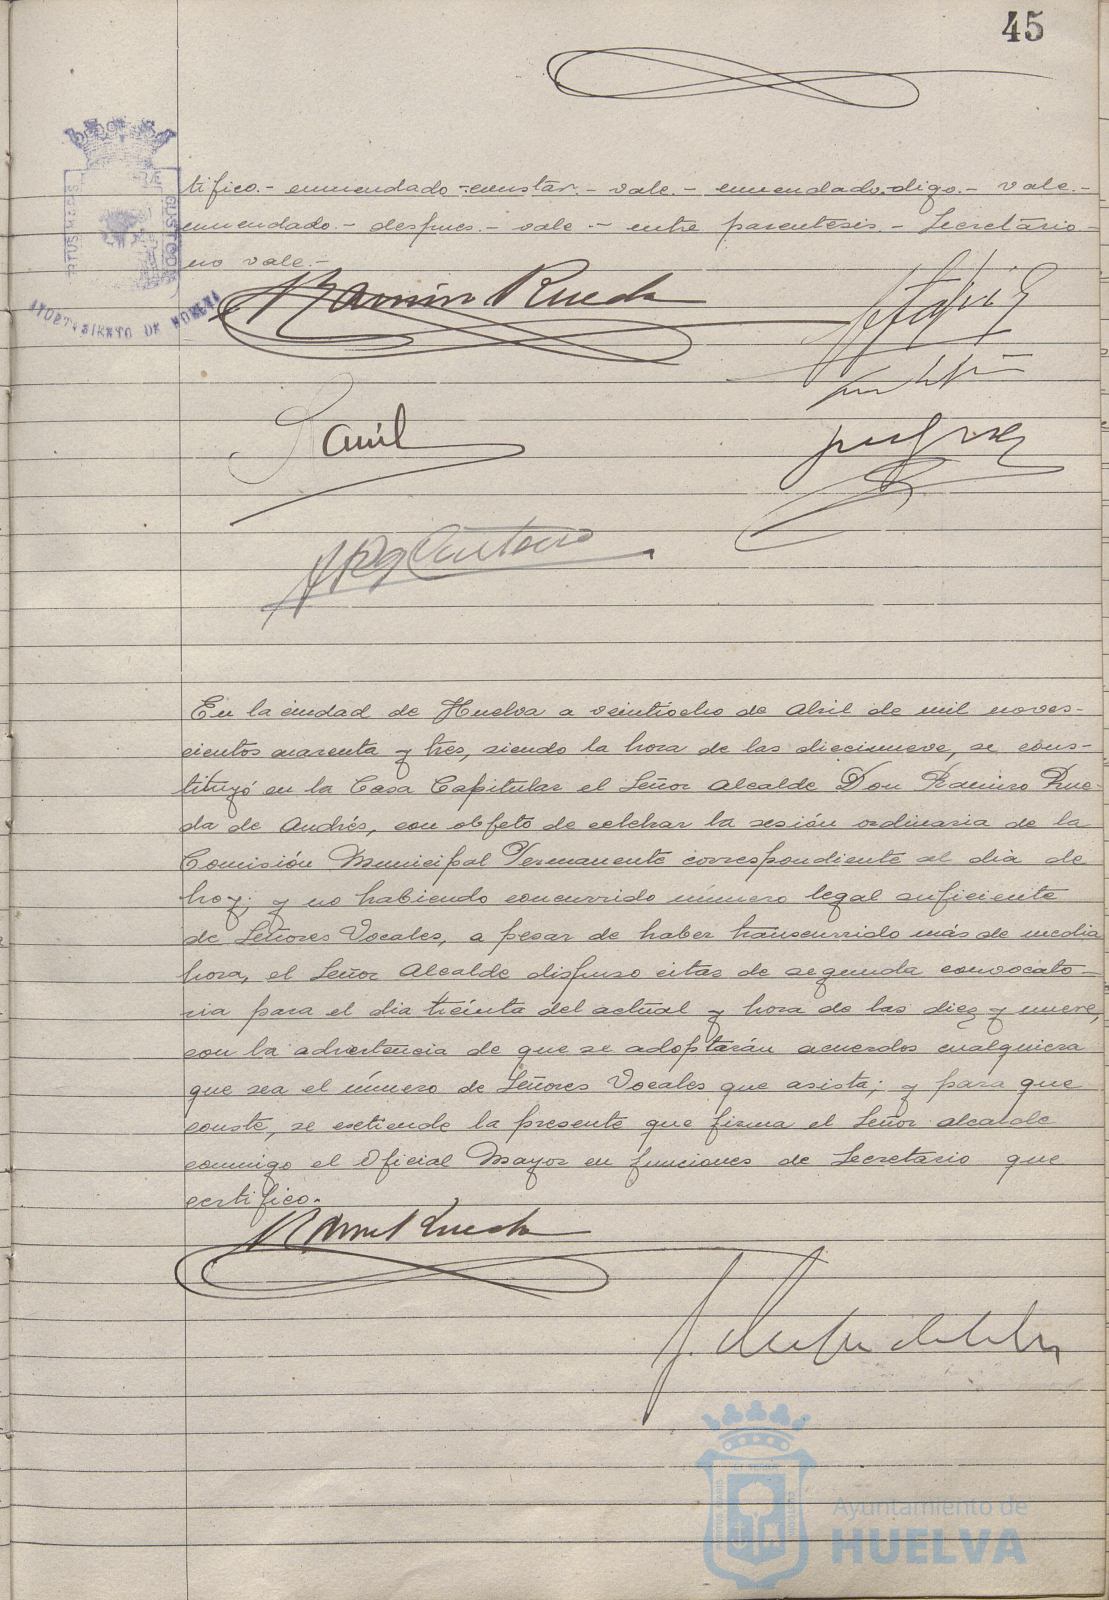 45
tifico.- enmendado -constar.- vale.- enmendado.digo.- vale.-
enmendado.- despues.- vale.- entre parentesis.- Secretario-
no vale.-
PORTUS MARIS
CUSTODI
AYUNTAMIENTO DE HUELVA
Ramiro Rueda
En la ciudad de Huelva a veintiocho de Abril de mil noves-
cientos cuarenta y tres, siendo la hora de las diecinueve, se cons-
tituyó en la Casa Capitular el Señor Alcalde Don Ramiro Rue-
da de Andrés, con objeto de celebrar la sesión ordinaria de la
Comisión Municipal Permanente correspondiente al dia de
hoy; y no habiendo concurrido número legal suficiente
de Señores Vocales, a pesar de haber transcurrido más de media
hora, el Señor Alcalde dispuso citar de segunda convocato-
ria para el dia treinta del actual y hora de las diez y nueve,
con la advertencia de que se adoptarán acuerdos cualquiera
que sea el número de Señores Vocales que asista; y para que
conste, se extiende la presente que firma el Señor Alcalde
conmigo el Oficial Mayor en funciones de Secretario que
certifico.
Ramiro Rueda
Ayuntamiento de
HUELVA